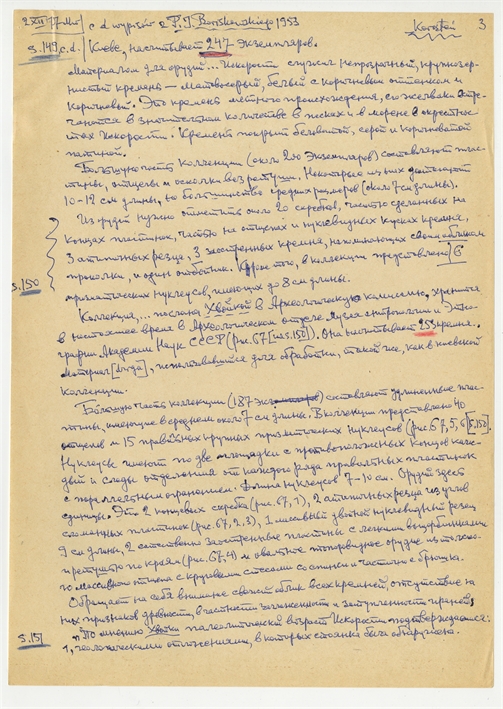 2 XII 77
c d wypisów z P. I. Boriskowskiego 1953
Korosteń
3
s. 149 c.d.
Киеве, насчитывает 247 экземпляров.
Материалом для орудий... Искорости служил непрозрачный, крупнозер-
нистый кремень — матовосерый, белый с коричневым оттенком и
коричневый. Это кремень местного происхождения, его желваки встре-
чаются в значительном количестве в песках и в морене в окрестнос-
тях Искорости. Кремень покрыт беловатой, серой и коричневатой
патиной.
Большую часть коллекции (около 200 экземпляров) составляют плас-
тины, отщепы и осколки без ретуши. Некоторые из них достигают
10-12 см длины, но большинство средних размеров (около 7 см длины).
Из орудий нужно отметить около 20 скребков, частью сделанных на
концах пластинок, частью на отщепах и нуклевидных кусках кремня,
3 атипичных резца, 3 заостренных кремня, напоминающих своим обликом
проколки, и один скобытник. Кроме того, в коллекции представлено 6
s. 150
призматических нуклеусов, имеющих до 8 см длины.
Коллекция, ... послана Хвойкой в Археологическую комиссию, хранится
в настоящее время в Археологическом отделе Музея антропологии и Этно-
графии Академии Наук СССР (рис. 67 [na s. 150]). Она насчитывает 253 кремня.
Материал, использовавшийся для обработки, такой же, как в киевской
коллекции.
Большую часть коллекции (187 экземпляров) составляют удлиненные плас-
тины, имеющие в среднем около 7 см длины. В коллекции представлено 40
отщепов и 15 правильных крупных призматических нуклеусов (рис. 67, 5, 6 [s. 150].
Нуклеусы имеют по две площадки с противоположных концов каж-
дый и следы отделения от каждого ряда правильных пластинок
с параллельным огранением. Длина нуклеусов 7-10 см. Орудия здесь
единицы. Это 2 концевых скребка (рис. 67, 1), 2 атипичных резца из углов
сломанных пластинок (рис. 67, 2, 3), 1 массивный двойной нуклевидный резец
9 см длины, 2 естественно заостренные пластины с легкими выдербинами
претушью по краям (рис. 67, 4) и овальное топоровидное орудие из плоско-
го массивного отщепа с круговыми стесами со спинки и частично с брюшка.
Обращает на себя внимание свежий облик всех кремней, отсутствие на
них признаков древности, в частности заглаженности и затупленности граней.
"По мнению Хвойки палеолитический возраст Искорости подтверждается:
s. 151
1, геологическими отложениями, в которых стоянка была обнаружена.